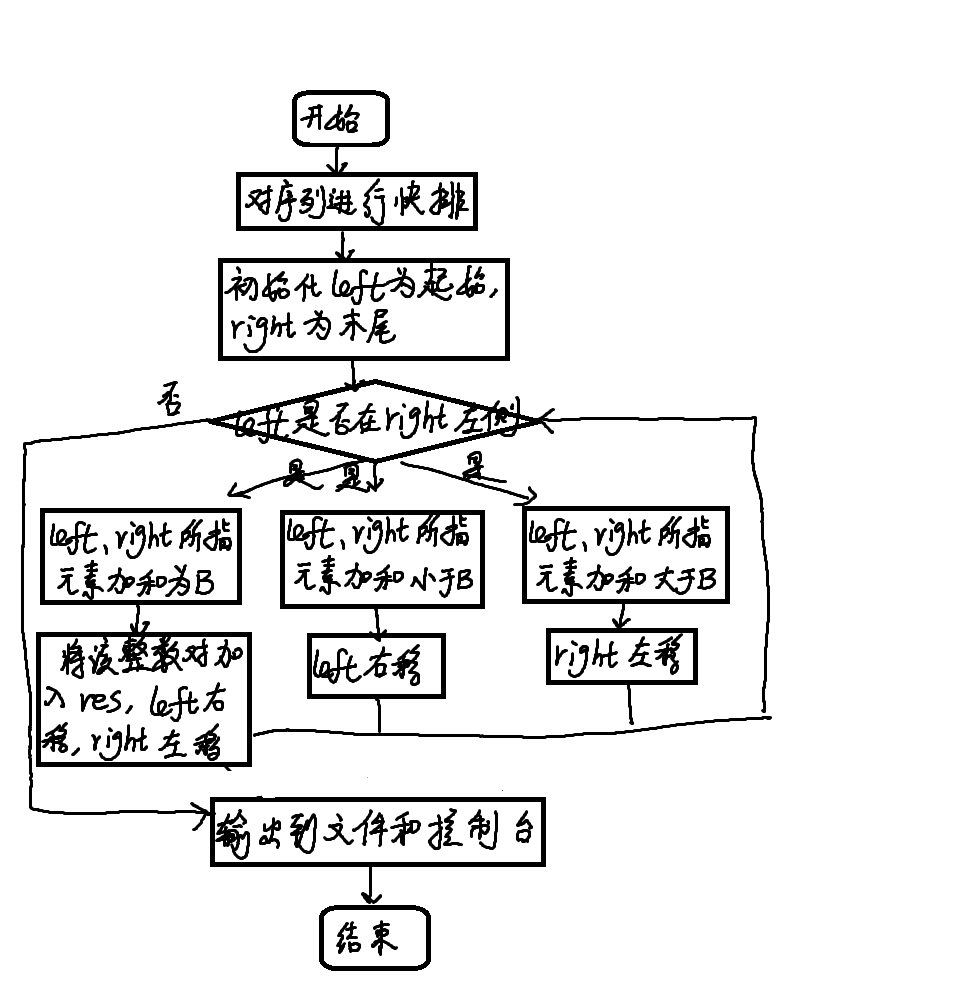 开始
对序列进行快排
初始化left为起始,
right为末尾
否
left是否在right左侧
是
是
是
left、right所指
元素加和为B
left、right所指
元素加和小于B
left、right所指
元素加和大于B
将该整数对加
入res, left右
移, right左移
left右移
right左移
输出到文件和控制台
结束